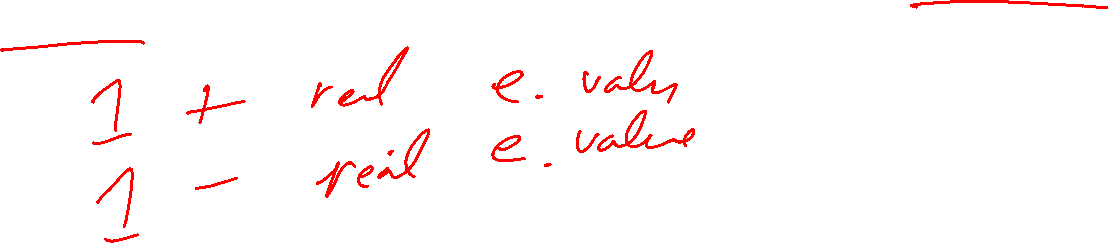 1 + real e. valus
1 - real e. value